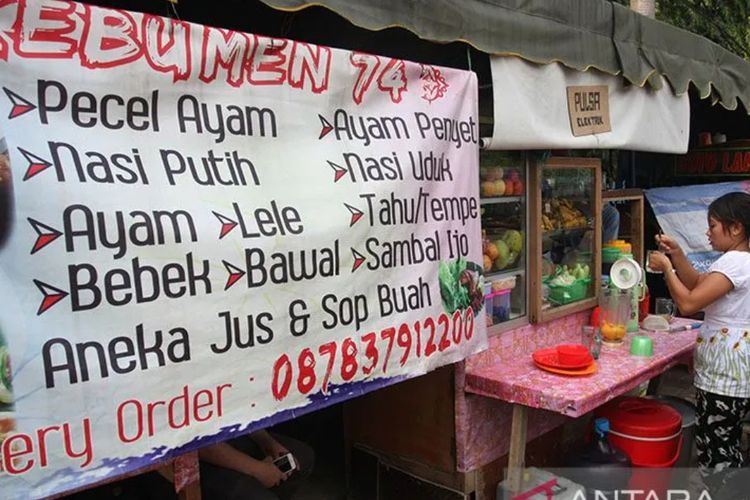 KEBUMEN 74
Pecel Ayam
Ayam Penyet
Nasi Putih
Nasi Uduk
Ayam
Lele
Tahu/Tempe
Bebek
Bawal
Sambal Ijo
Aneka Jus & Sop Buah
ery Order : 087837912200
PULSA
ELEKTRIK
ANTARA